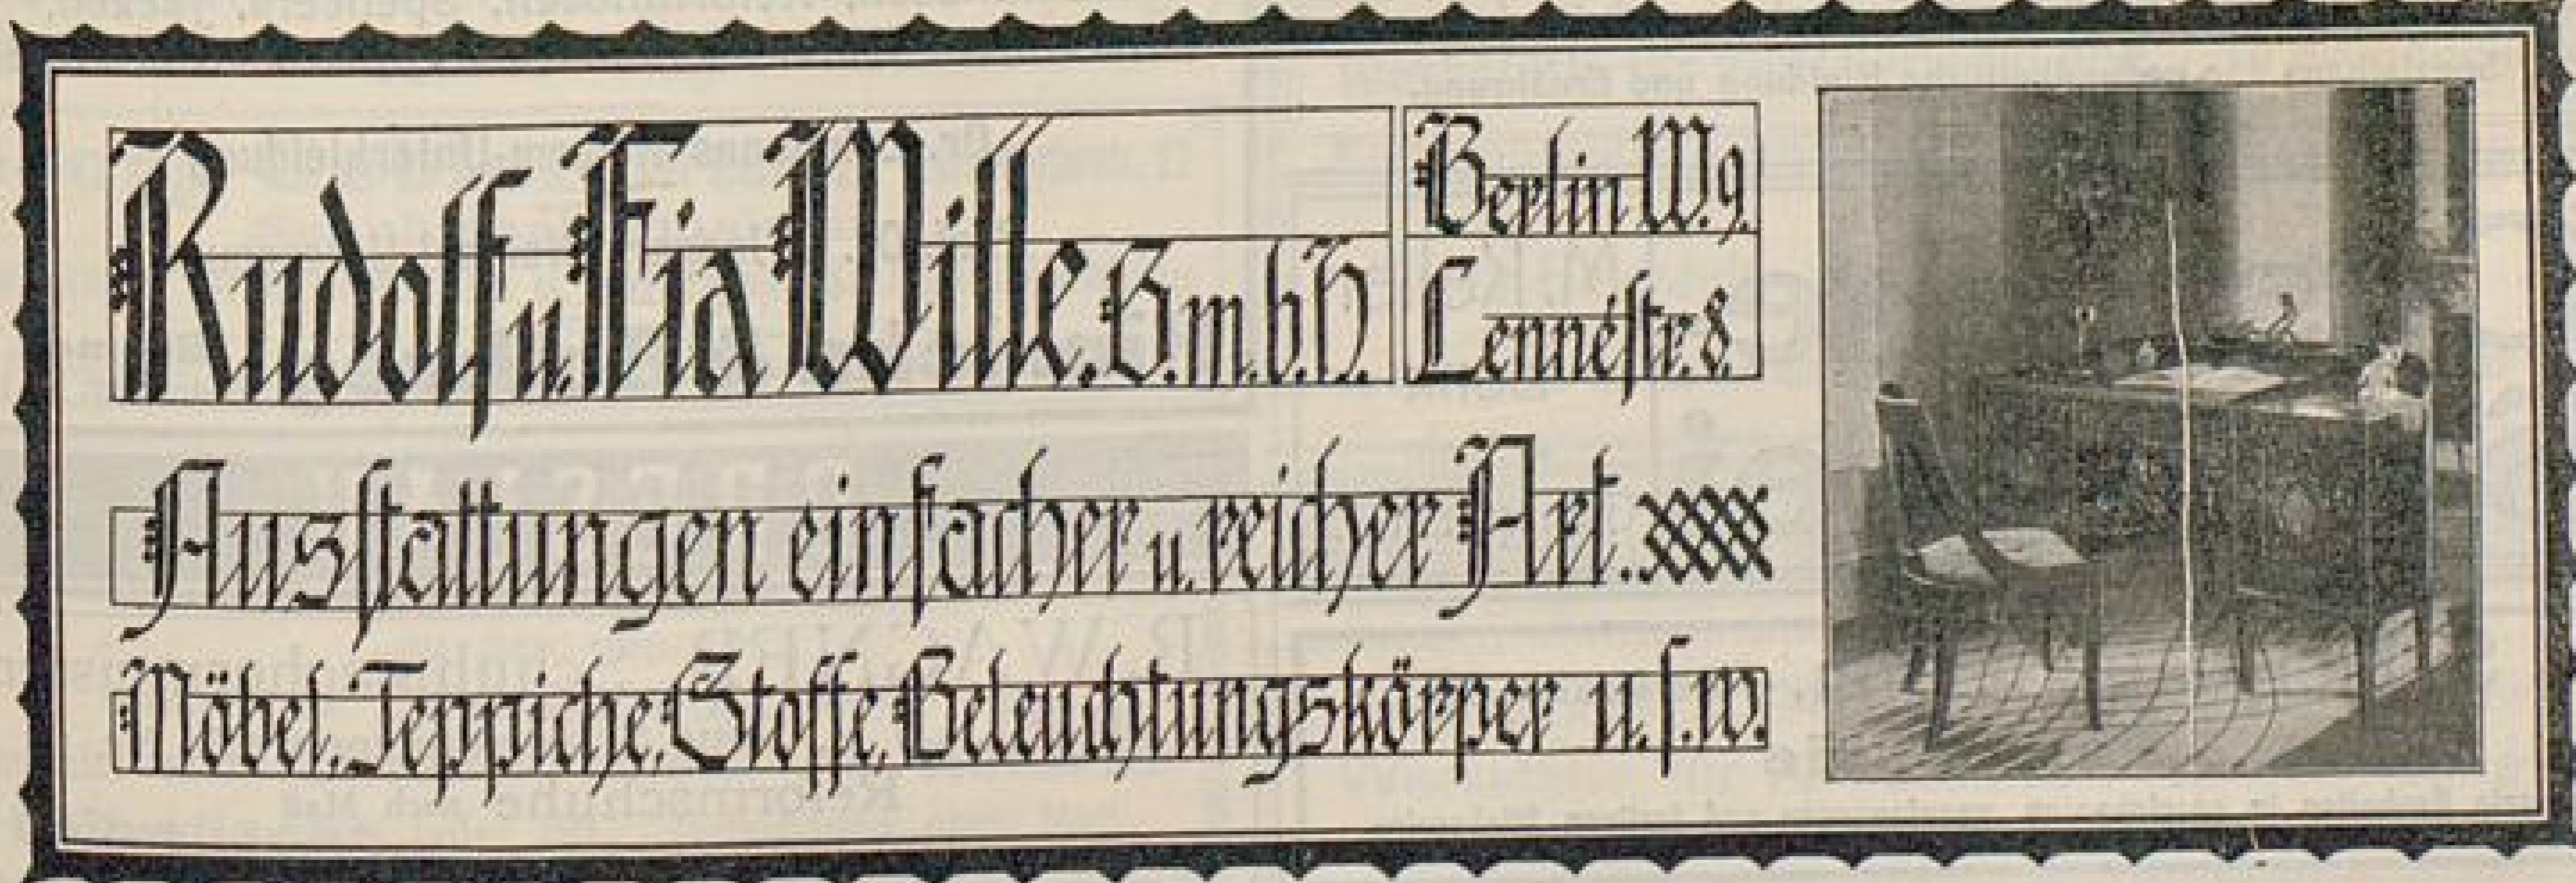 Rudolf u. Fia Wille. G.m.b.H.
Berlin W.9.
Lennéstr. 8.
Ausstattungen einfacher u. reicher Art.
Möbel, Teppiche, Stoffe, Beleuchtungskörper u.s.w.